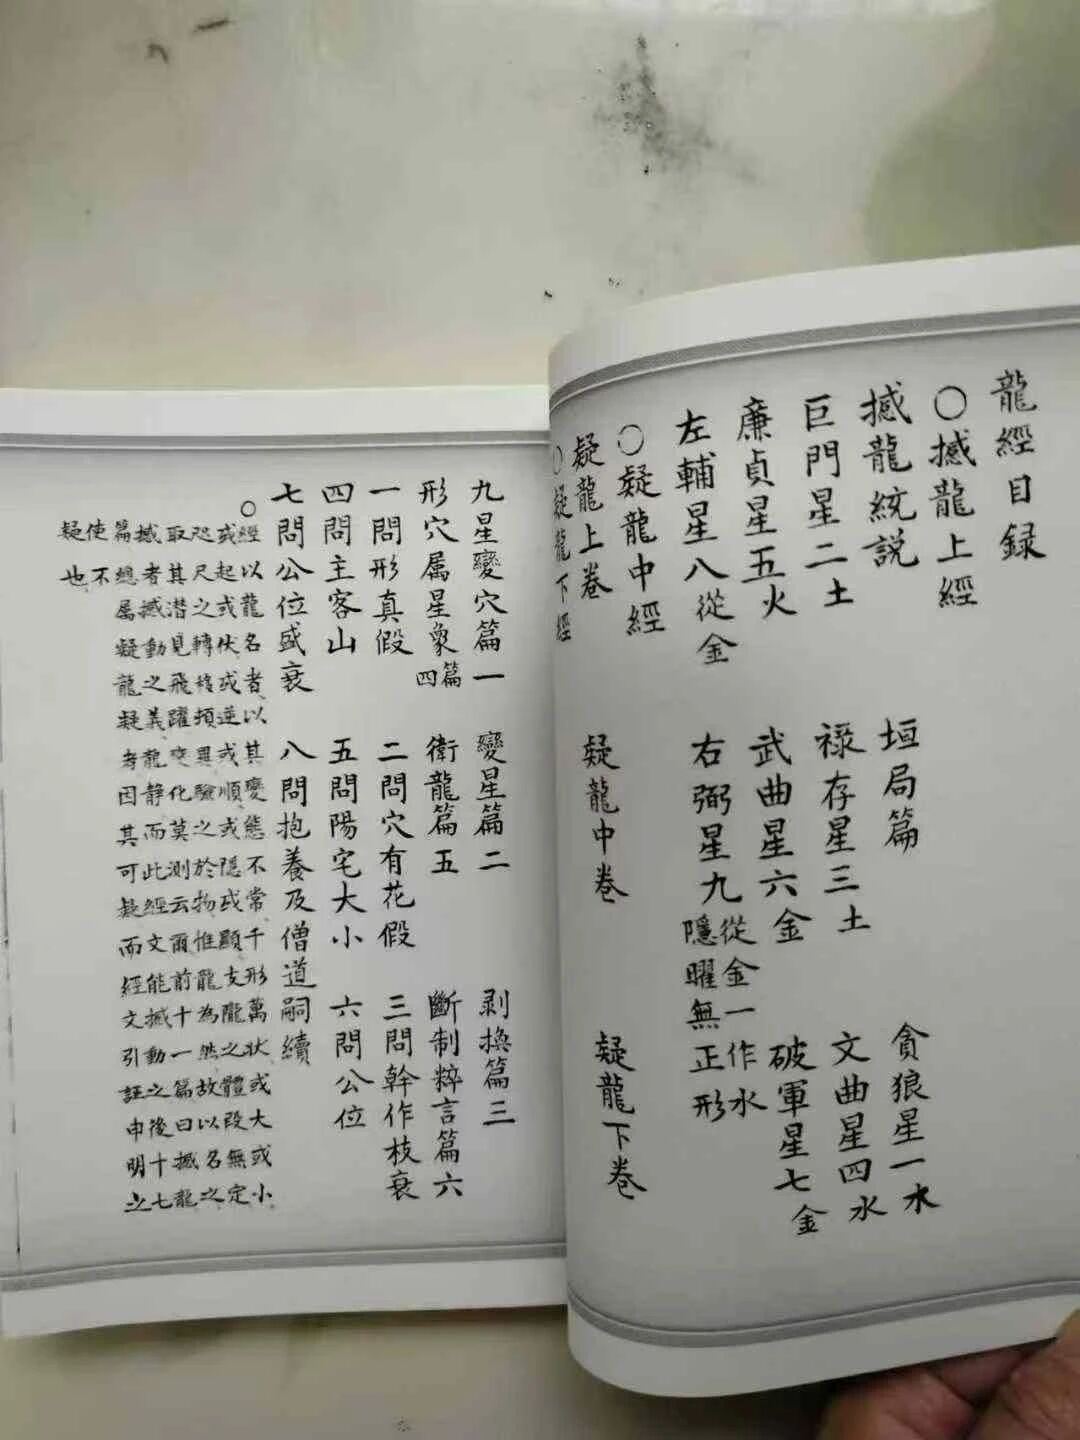 龍經目録
○撼龍上經
撼龍統説 垣局篇 貪狼星一水
巨門星二土 禄存星三土 文曲星四水
廉貞星五火 武曲星六金 破軍星七金
左輔星八從金 右弼星九從金一作水隱曜無正形
○疑龍中經
疑龍上卷 疑龍中卷 疑龍下卷
○疑龍下經
九星變穴篇一 變星篇二 剥換篇三
形穴属星象篇四 衛龍篇五 斷制粹言篇六
一問形真假 二問穴有花假 三問幹作枝衰
四問主客山 五問陽宅大小 六問公位
七問公位盛衰 八問抱養及僧道嗣續
○經以龍名者以其變態不常千形萬状或大或小
或起或伏或逆或順或隱或顯支隴之體段無定
咫尺之轉移頃異驗之於物惟龍為然故以名之
取其潜見飛躍变化莫測云爾前十一篇曰撼龍
撼者撼動之義龍静而此經文能撼動之後十七
篇總属疑龍疑者因其可疑而經文引証申明之
使不
疑也